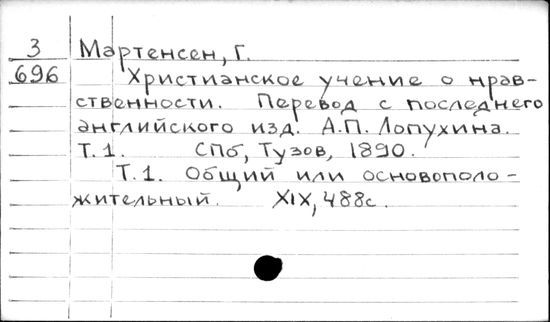 3 Мартенсен, Г.
696 Христианское учение о нрав-
ственности. Перевод с последнего
английского изд. А.П. Лопухина.
Т.1. СПб, Тузов, 1890.
Т.1. Общий или основополо-
жительный. XIX, 488с.